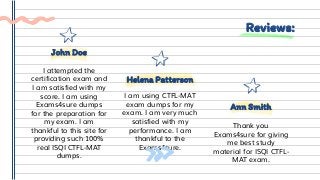 Reviews:
John Doe
I attempted the
certification exam and
I am satisfied with my
score. I am using
Exams4sure dumps
for the preparation for
my exam. I am
thankful to this site for
providing such 100%
real ISQI CTFL-MAT
dumps.
Helena Patterson
I am using CTFL-MAT
exam dumps for my
exam. I am very much
satisfied with my
performance. I am
thankful to the
Exams4sure.
Ann Smith
Thank you
Exams4sure for giving
me best study
material for ISQI CTFL-
MAT exam.